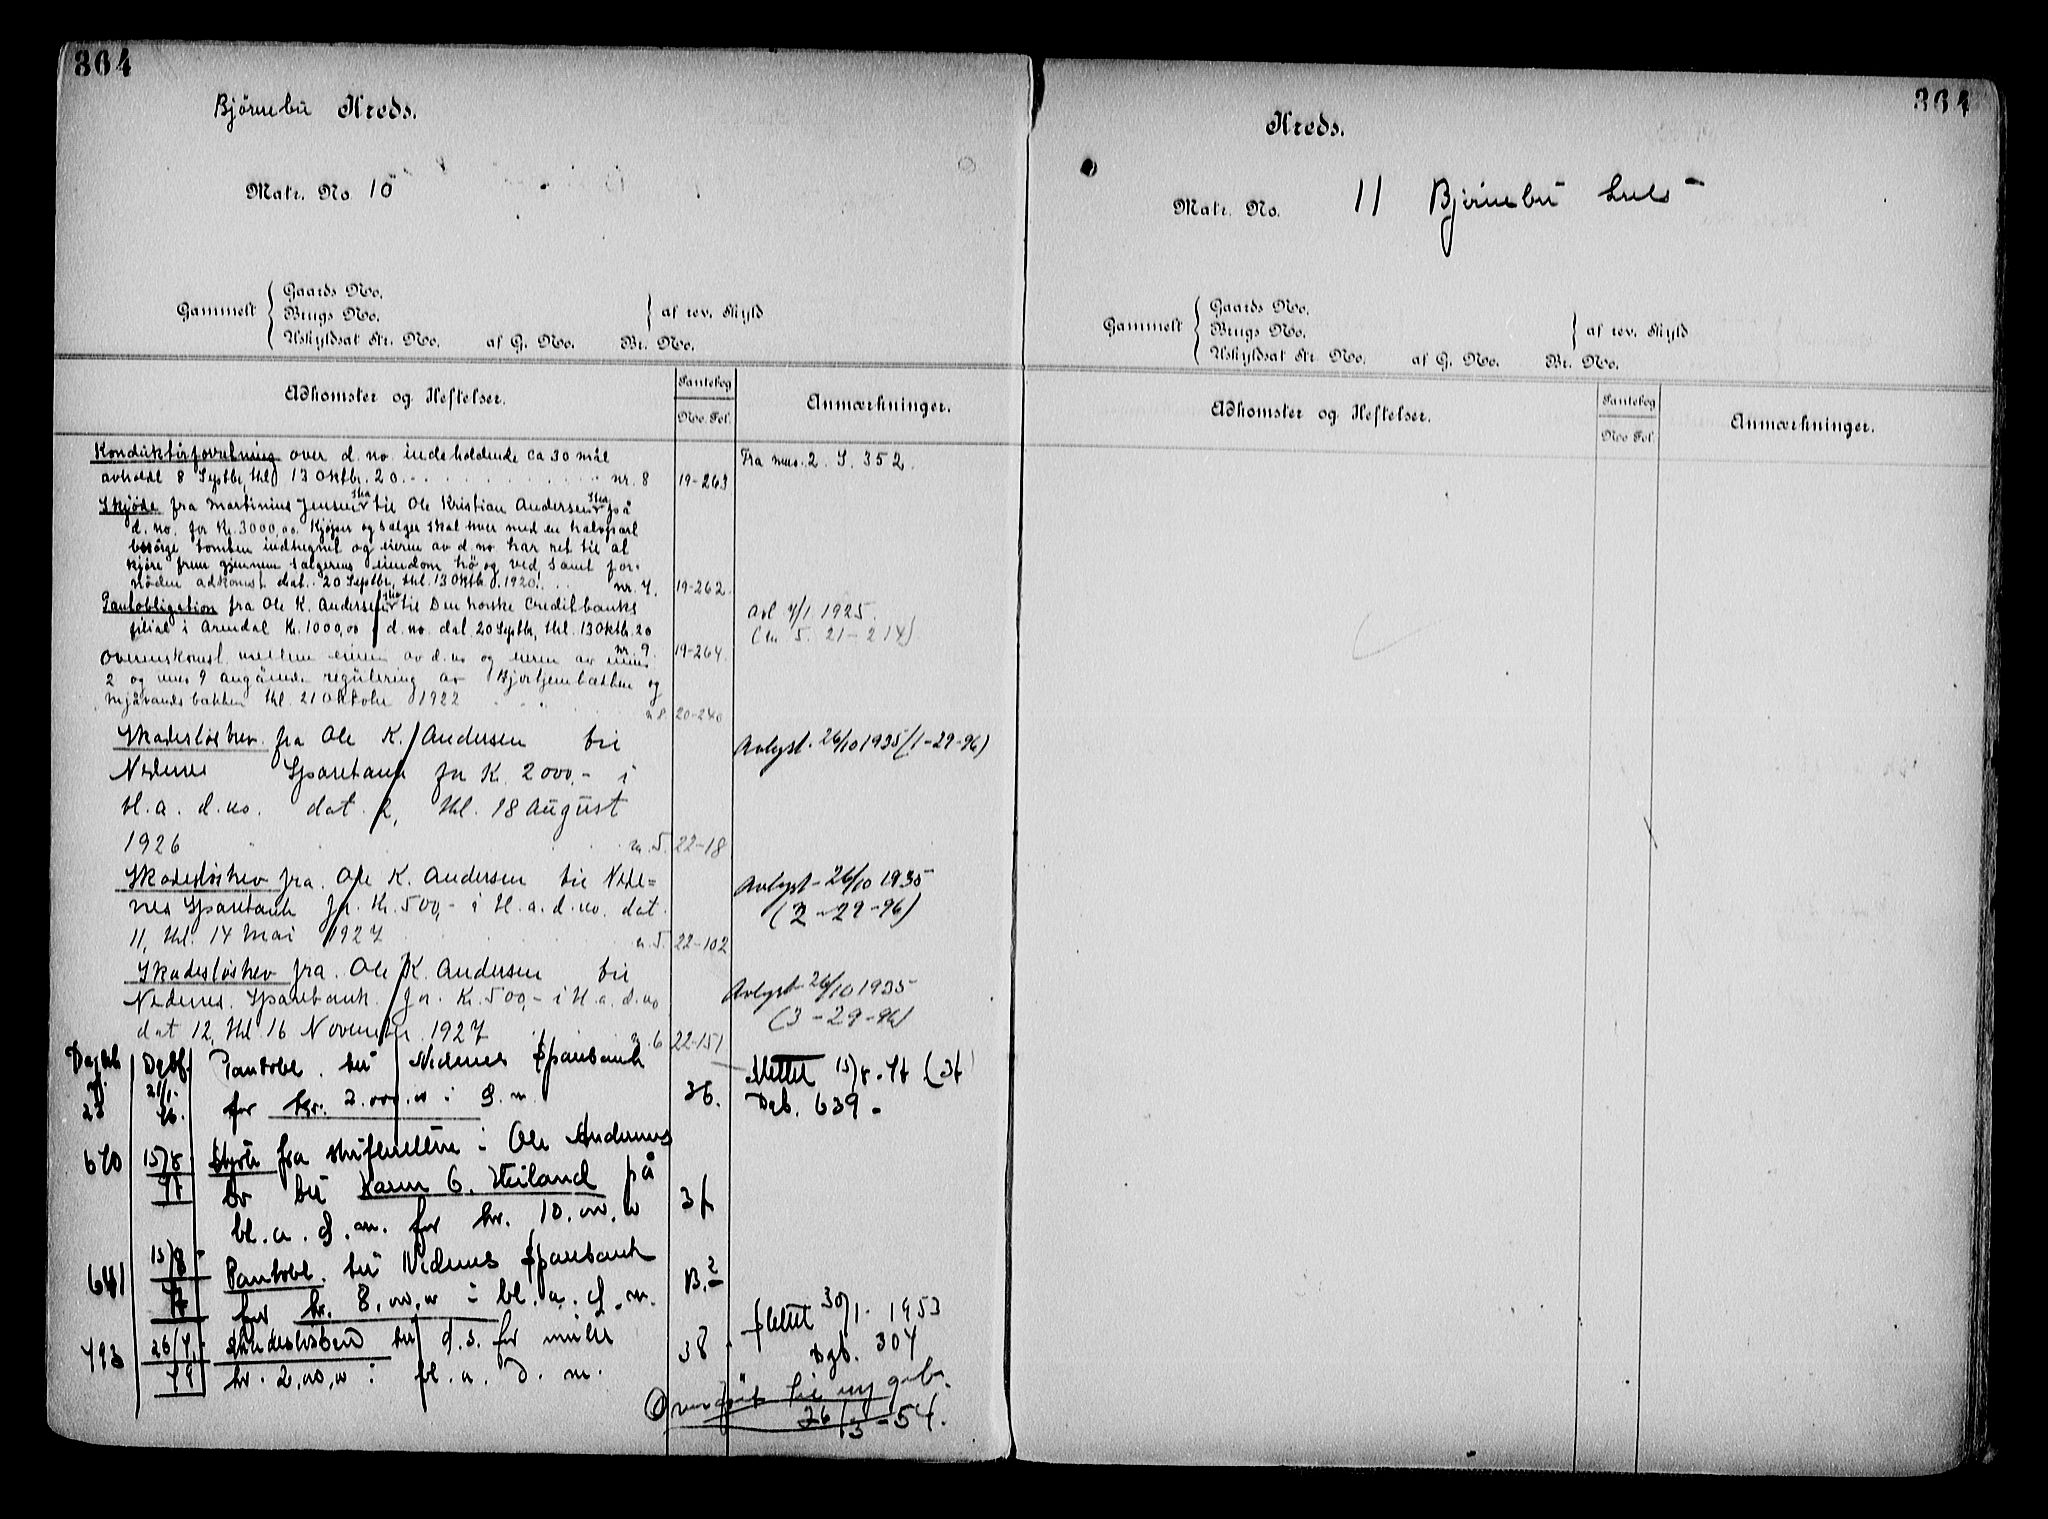 364
Bjørnebu Kreds.
Matr. No. 10
Gammelt
Gaards No.
Brugs No.
Uskyldsat Str. No. af G. No. Br. No.
af rev. Skyld
Adkomster og Heftelser.
Pantebog
No. Fol.
Anmærkninger.
Konduktørforretning over d. no. indeholdende ca 30 mål
avholdt 8 Septbr, thl 13 Oktbr. 20. nr. 8 19-263
Fra mno. 2 S. 352.
Skjøde fra Martinius Jensen til Ole Kristian Andersen på
d. no. for Kr. 3000,00. Kjøper og sælger skal hver med en halvpart
besørge tomten indhegnet og eieren av d. no har ret til at
kjøre frem gjennem sælgerens eiendom hø og ved, samt for-
nøden adkomst dat. 20 Septbr, thl. 13 Oktbr. 1920. nr. 7. 19-262
Pantobligation fra Ole K. Andersen til Den norske Creditbanks
filial i Arendal Kr. 1000,00 i d. no. dat. 20 Septbr, thl. 13 Oktbr. 20
nr. 9. 19-264
Avl 7/1 1925.
(nr. 5. 21-214)
Overenskomst mellem eieren av d. no og eieren av mno
2 og mno 9 angående regulering av Bjortjernbækken og
Mjåvandsbækken thl. 21 Oktober 1922 n 8 20-240
Skadesløsbrev fra Ole K. Andersen til
Nedenes Sparebank for Kr. 2000,- i
bl. a. d. no. dat. 2, thl. 18 August
1926 nr. 5. 22-18
Avlyst 26/10 1935 (1-29-96)
Skadesløsbrev fra Ole K. Andersen til Nede=
nes Sparebank for Kr. 500,- i bl. a. d. no. dat.
11, thl. 14 Mai 1927 n. 5. 22-102
Avlyst 26/10 1935
(2-29-96)
Skadesløsbrev fra Ole K. Andersen til
Nedenes Sparebank for Kr. 500,- i bl. a. d. no
dat 12, thl. 16 November 1927 n. 6 22-151
Avlyst 26/10 1935
(3-29-96)
Dagb. Dgbf. Pantobl. til Nedenes Sparebank
23 21/1- 46. for kr. 2.000,00 i d. n. 36.
Slettet 15/8-47 (37)
Dgb. 639.
640 15/8 47 Skjøte fra skifteretten i Ole Andersens
bo til Karen G. Heiland på
bl. a. d. m. for kr. 10.000,00 37
641 15/8- 47 Pantobl. til Nedenes Sparebank
for kr. 8.000,00 i bl. a. d. m. B.2
493 26/7- 49 Skadesløsbrev til d. s. for inntil
kr. 2.000,00 i bl. a. d. m. 38
slettet 30/1- 1953
Dgb. 304
Overført til ny gab.
26/3-54.
364
Kreds.
Matr. No. 11 Bjørnebu
Gammelt
Gaards No.
Brugs No.
Uskyldsat Str. No. af G. No. Br. No.
af rev. Skyld
Adkomster og Heftelser.
Pantebog
No. Fol.
Anmærkninger.